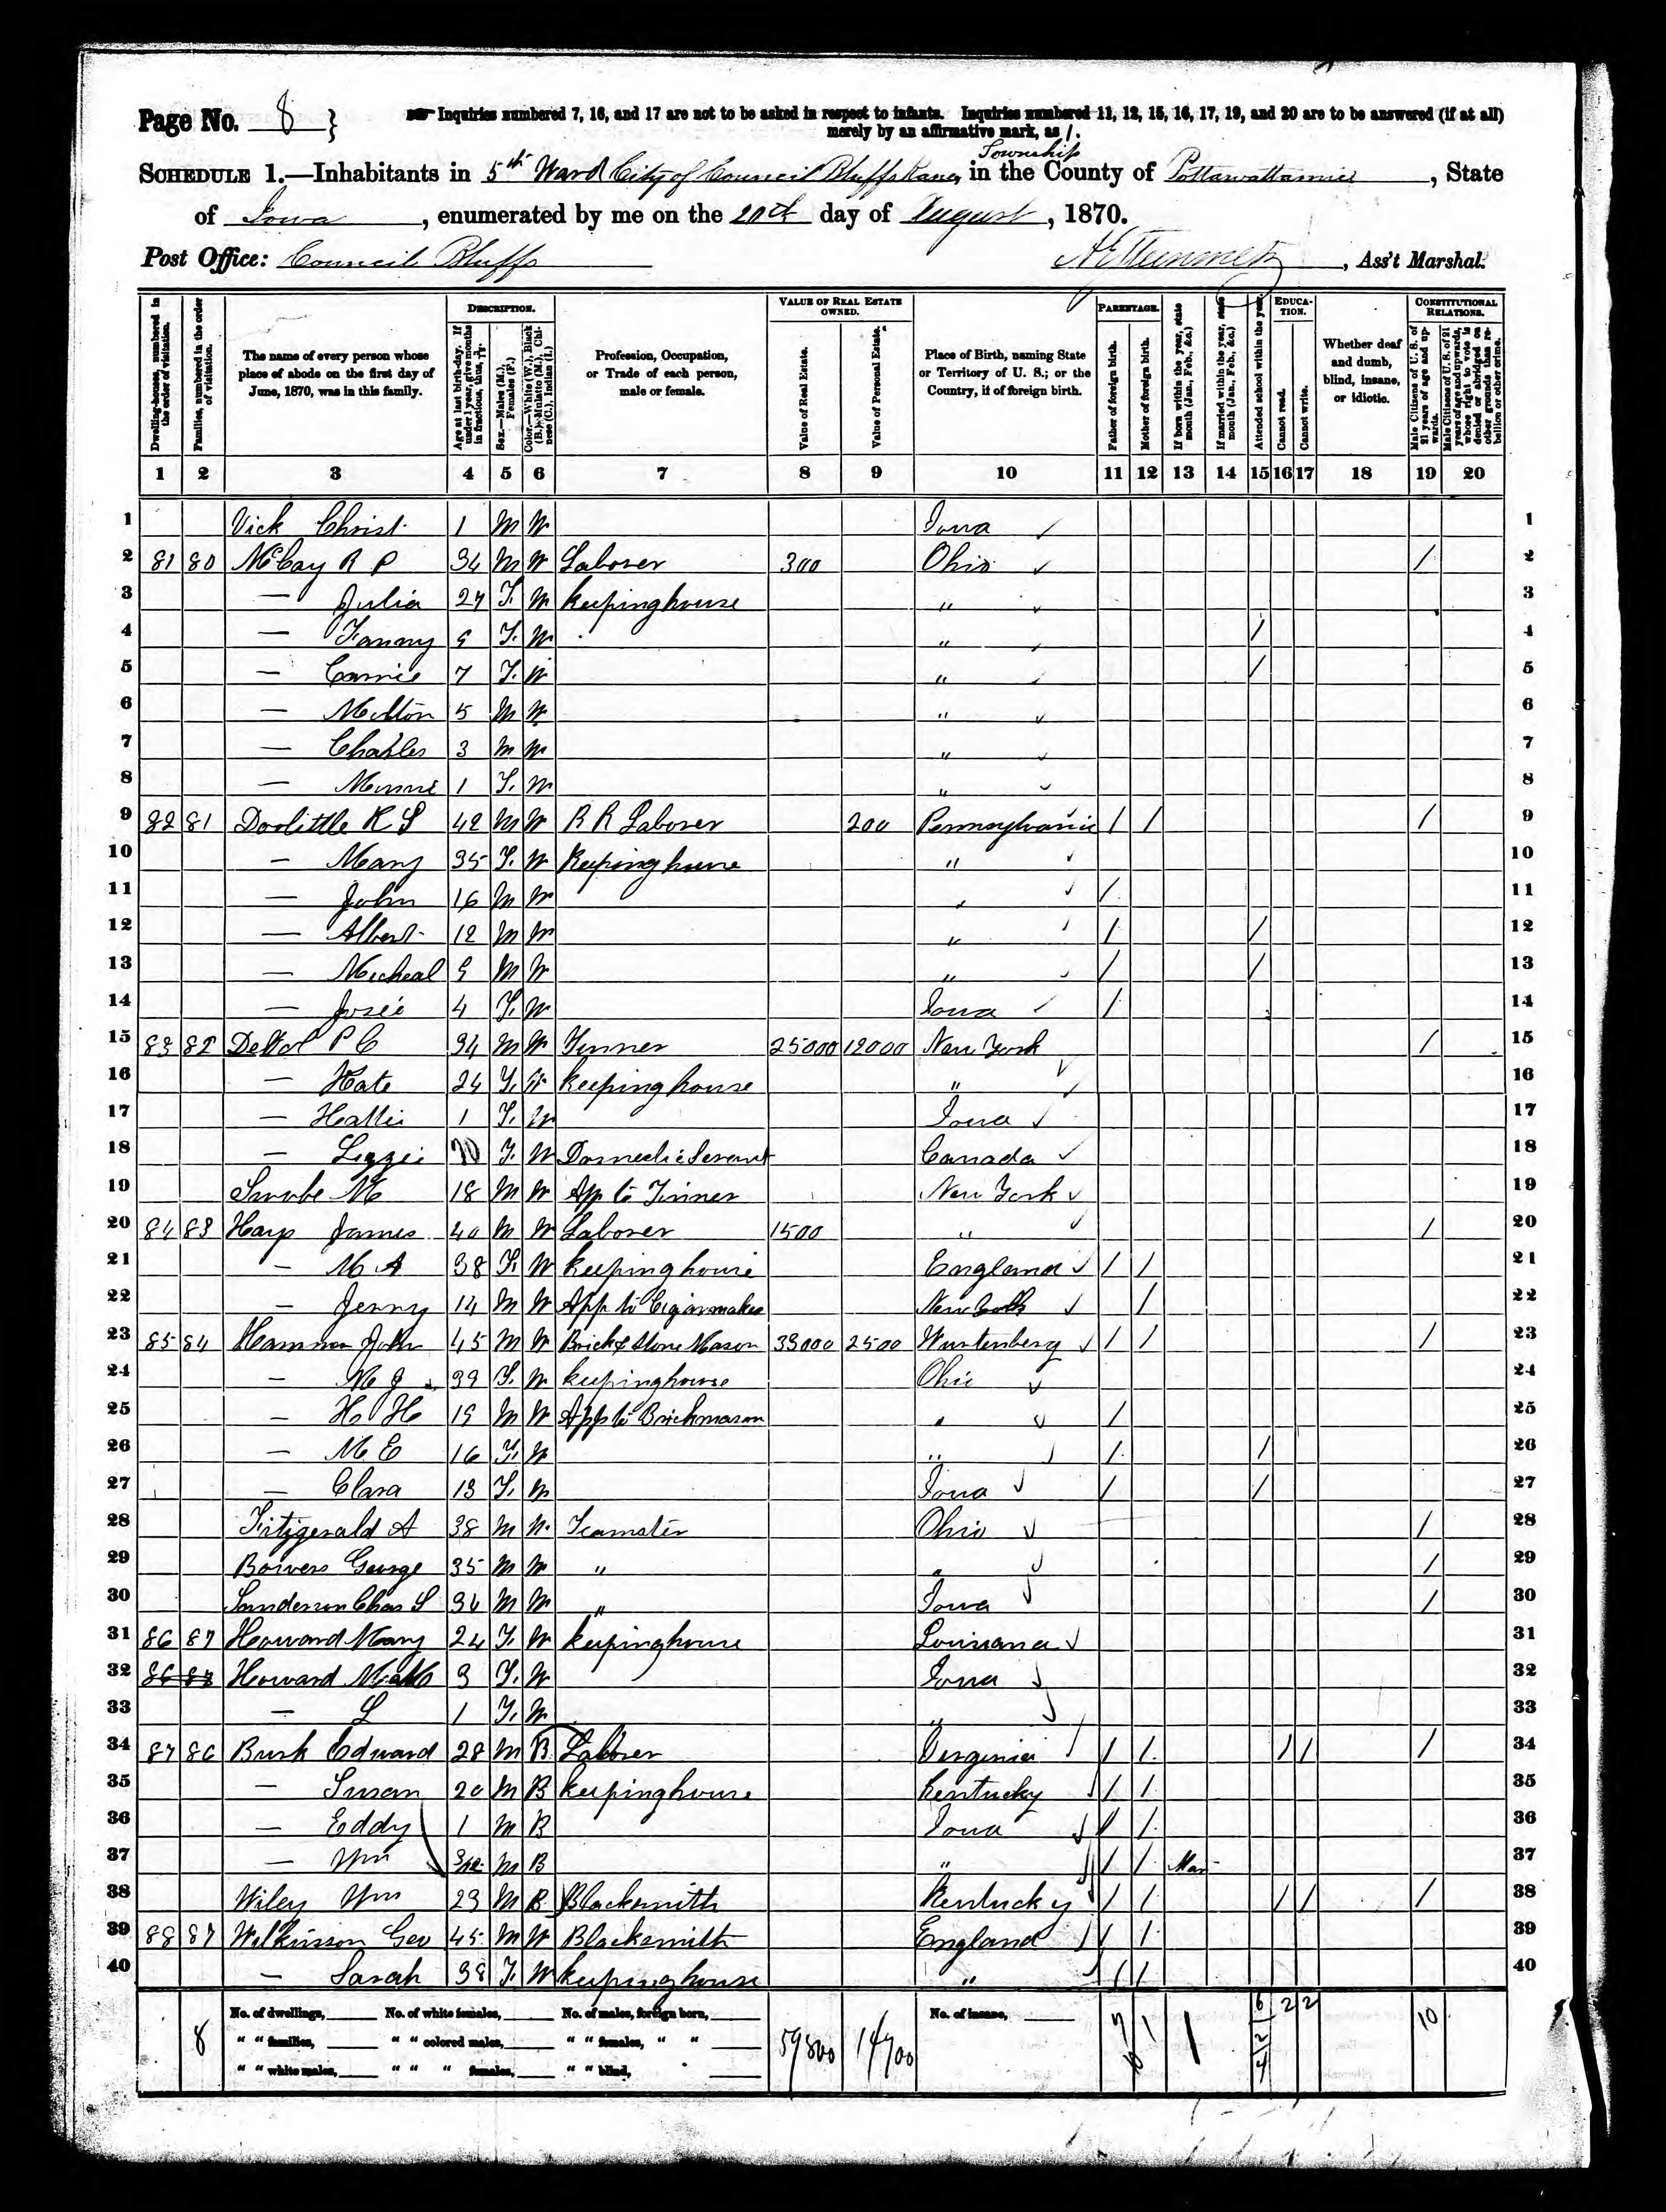 Page No. 8 }
Inquiries numbered 7, 16, and 17 are not to be asked in respect to infants. Inquiries numbered 11, 12, 15, 16, 17, 19, and 20 are to be answered (if at all)
merely by an affirmative mark, as /.
Township
SCHEDULE 1.—Inhabitants in 5th Ward City of Council Bluffs Kane, in the County of Pottawattamie, State
of Iowa, enumerated by me on the 20th day of August, 1870.
Post Office: Council Bluffs
, Ass't Marshal.
Dwelling-houses, numbered in the order of visitation.
Families, numbered in the order of visitation.
The name of every person whose place of abode on the first day of June, 1870, was in this family.
DESCRIPTION.
Age at last birth-day. If under 1 year, give months in fractions, thus, 3/12.
Sex.—Males (M.), Females (F.)
Color.—White (W.), Black (B.), Mulatto (M.), Chinese (C.), Indian (I.)
Profession, Occupation, or Trade of each person, male or female.
VALUE OF REAL ESTATE OWNED.
Value of Real Estate.
Value of Personal Estate.
Place of Birth, naming State or Territory of U. S.; or the Country, if of foreign birth.
PARENTAGE.
Father of foreign birth.
Mother of foreign birth.
If born within the year, state month (Jan., Feb., &c.)
If married within the year, state month (Jan., Feb., &c.)
Attended school within the year.
EDUCATION.
Cannot read.
Cannot write.
Whether deaf and dumb, blind, insane, or idiotic.
CONSTITUTIONAL RELATIONS.
Male Citizens of U. S. of 21 years of age and upwards.
Male Citizens of U. S. of 21 years of age and upwards, whose right to vote is denied or abridged on other grounds than rebellion or other crime.
1 2 3 4 5 6 7 8 9 10 11 12 13 14 15 16 17 18 19 20
1 Vick Christ 1 M W Iowa 1
2 81 80 McCay R P 34 M W Laborer 300 Ohio / 2
3 — Julia 27 F. W keeping house " 3
4 — Fanny 9 F. W " / 4
5 — Carrie 7 F. W " / 5
6 — Milton 5 M W " 6
7 — Charles 3 M W " 7
8 — Minnie 1 F. W " 8
9 82 81 Doolittle R S 42 M W R R Laborer 200 Pennsylvania / / / 9
10 — Mary 35 F. W Keeping house " 10
11 — John 16 M W " / 11
12 — Albert 12 M W " / / 12
13 — Micheal 9 M W " / / 13
14 — Josie 4 F. W Iowa / 14
15 83 82 P C 34 M W Tinner 25000 12000 New York / 15
16 — Kate 24 F. W keeping house " 16
17 — Hattie 1 F. W Iowa 17
18 — Lizzie F. W Domestic Servant Canada 18
19 M 18 M W App to Tinner New York 19
20 84 83 Hays James 40 M W Laborer 1500 " / 20
21 — M A 38 F. W keeping house England / / 21
22 — Jenny 14 M W App to Cigarmaker New York / 22
23 85 84 Hammer John 45 M W Brick & Stone Mason 33000 2500 Wurtenberg / / / 23
24 — M J 39 F. W keeping house Ohio 24
25 — H H 19 M W App to Brickmason " / 25
26 — M E 16 F. W " / / 26
27 — Clara 13 F. W Iowa / / 27
28 Fitzgerald A 38 M W Teamster Ohio / 28
29 Bowers George 35 M W " " / 29
30 Sanderson Chas S M W " Iowa / 30
31 86 Howard Mary 24 F. W keeping house Louisiana 31
32 Howard 3 F. W Iowa 32
33 — L 1 F. W " 33
34 87 86 Burk Edward 28 M B Laborer Virginia / / / / / 34
35 — Susan 20 M B keeping house Kentucky / / 35
36 — Eddy 1 M B Iowa / / 36
37 — Wm 3/12 M B " / / Mar 37
38 Wiley Wm 23 M B Blacksmith Kentucky / / / / / 38
39 88 87 Wilkinson Geo 45 M W Blacksmith England / / 39
40 — Sarah 38 F. W keeping house " / / 40
8
No. of dwellings, No. of white females, No. of males, foreign born,
" " families, " " colored males, " " females, " "
" " white males, " " " females, " " blind,
59800 14700
No. of insane,
6 2 2 10